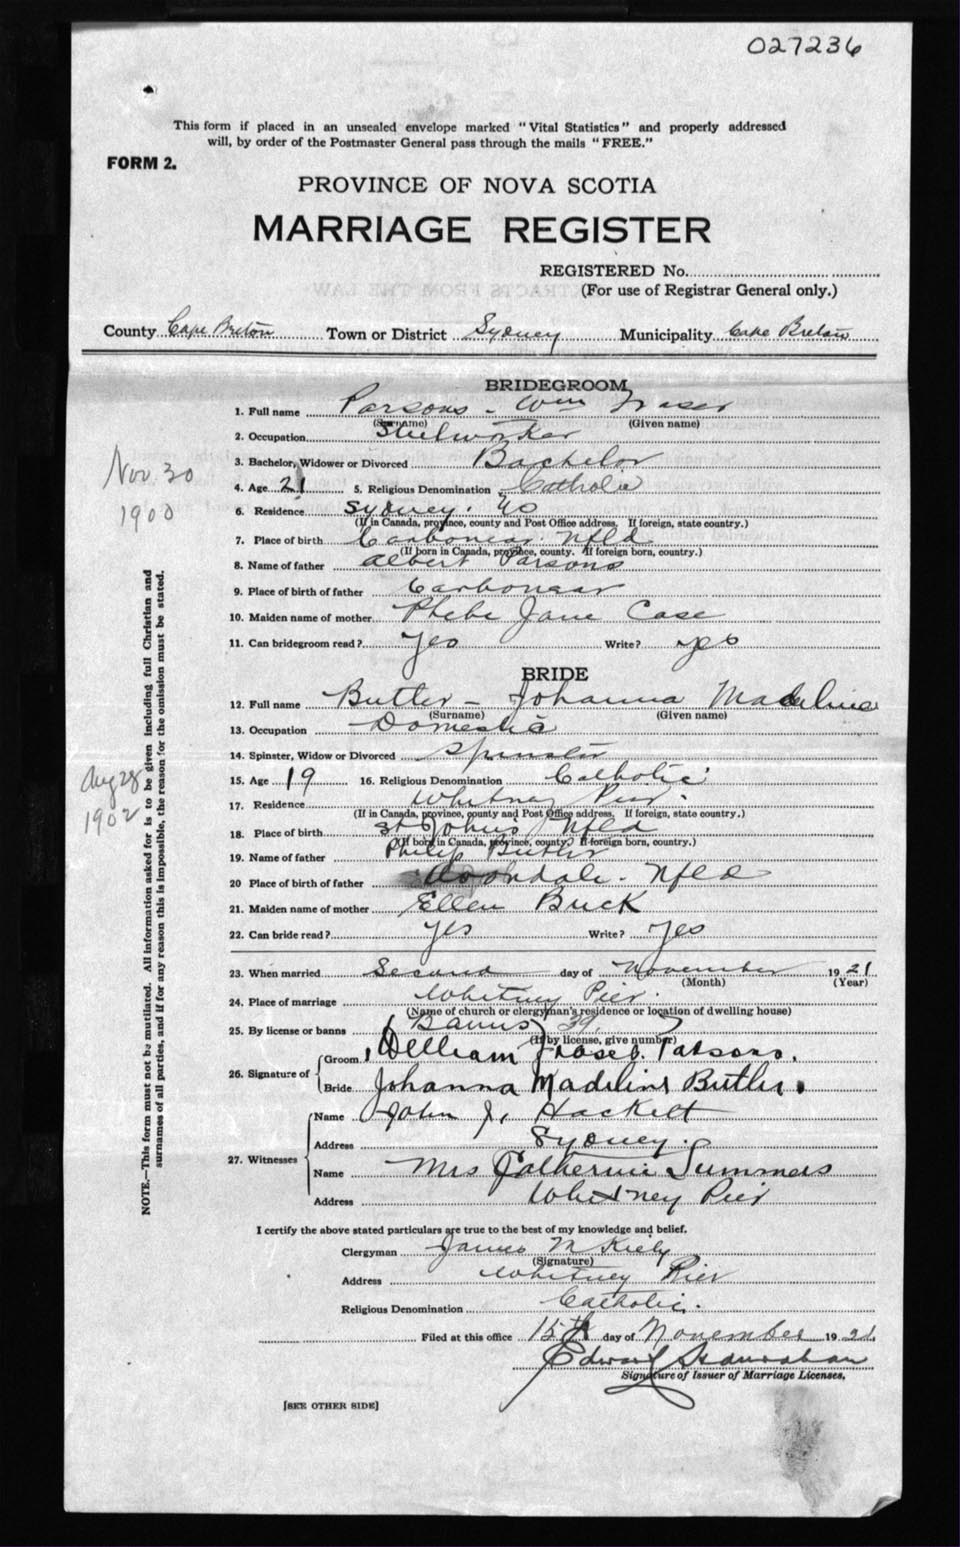 027236
This form if placed in an unsealed envelope marked "Vital Statistics" and properly addressed
will, by order of the Postmaster General pass through the mails "FREE."
FORM 2.
PROVINCE OF NOVA SCOTIA
MARRIAGE REGISTER
REGISTERED No.
(For use of Registrar General only.)
County Cape Breton Town or District Sydney Municipality Cape Breton
BRIDEGROOM
1. Full name Parsons - Wm Fraser
(Surname) (Given name)
2. Occupation Steelworker
3. Bachelor, Widower or Divorced Bachelor
Nov 30
1900
4. Age 21 5. Religious Denomination Catholic
6. Residence Sydney.
(If in Canada, province, county and Post Office address. If foreign, state country.)
7. Place of birth Carbonear. Nfld
(If born in Canada, province, county. If foreign born, country.)
8. Name of father Albert Parsons
9. Place of birth of father Carbonear
10. Maiden name of mother Phebe Jane Case
11. Can bridegroom read? Yes Write? yes
BRIDE
12. Full name Butler - Johanna Madeline
(Surname) (Given name)
13. Occupation Domestic
14. Spinster, Widow or Divorced Spinster
Aug 28
1902
15. Age 19 16. Religious Denomination Catholic
17. Residence Whitney Pier.
(If in Canada, province, county and Post Office address. If foreign, state country.)
18. Place of birth St Johns Nfld
(If born in Canada, province, county. If foreign born, country.)
19. Name of father Philip Butler
20 Place of birth of father Avondale - Nfld
21. Maiden name of mother Ellen Buck
22. Can bride read? Yes Write? Yes
23. When married Second day of November 1921
(Month) (Year)
24. Place of marriage Whitney Pier.
(Name of church or clergyman's residence or location of dwelling house)
25. By license or banns (Banns) 39.
(If by license, give number)
26. Signature of
Groom William Fraser Parsons.
Bride Johanna Madeline Butler.
27. Witnesses
Name John J. Hackett
Address Sydney.
Name Mrs Catherine Summers
Address Whitney Pier
NOTE.—This form must not be mutilated. All information asked for is to be given including full Christian and
surnames of all parties, and if for any reason this is impossible, the reason for the omission must be stated.
I certify the above stated particulars are true to the best of my knowledge and belief.
Clergyman James M Kiely
(Signature)
Address Whitney Pier
Religious Denomination Catholic.
Filed at this office 15th day of November 1921
Edward Hanrahan
Signature of Issuer of Marriage Licenses.
[SEE OTHER SIDE]